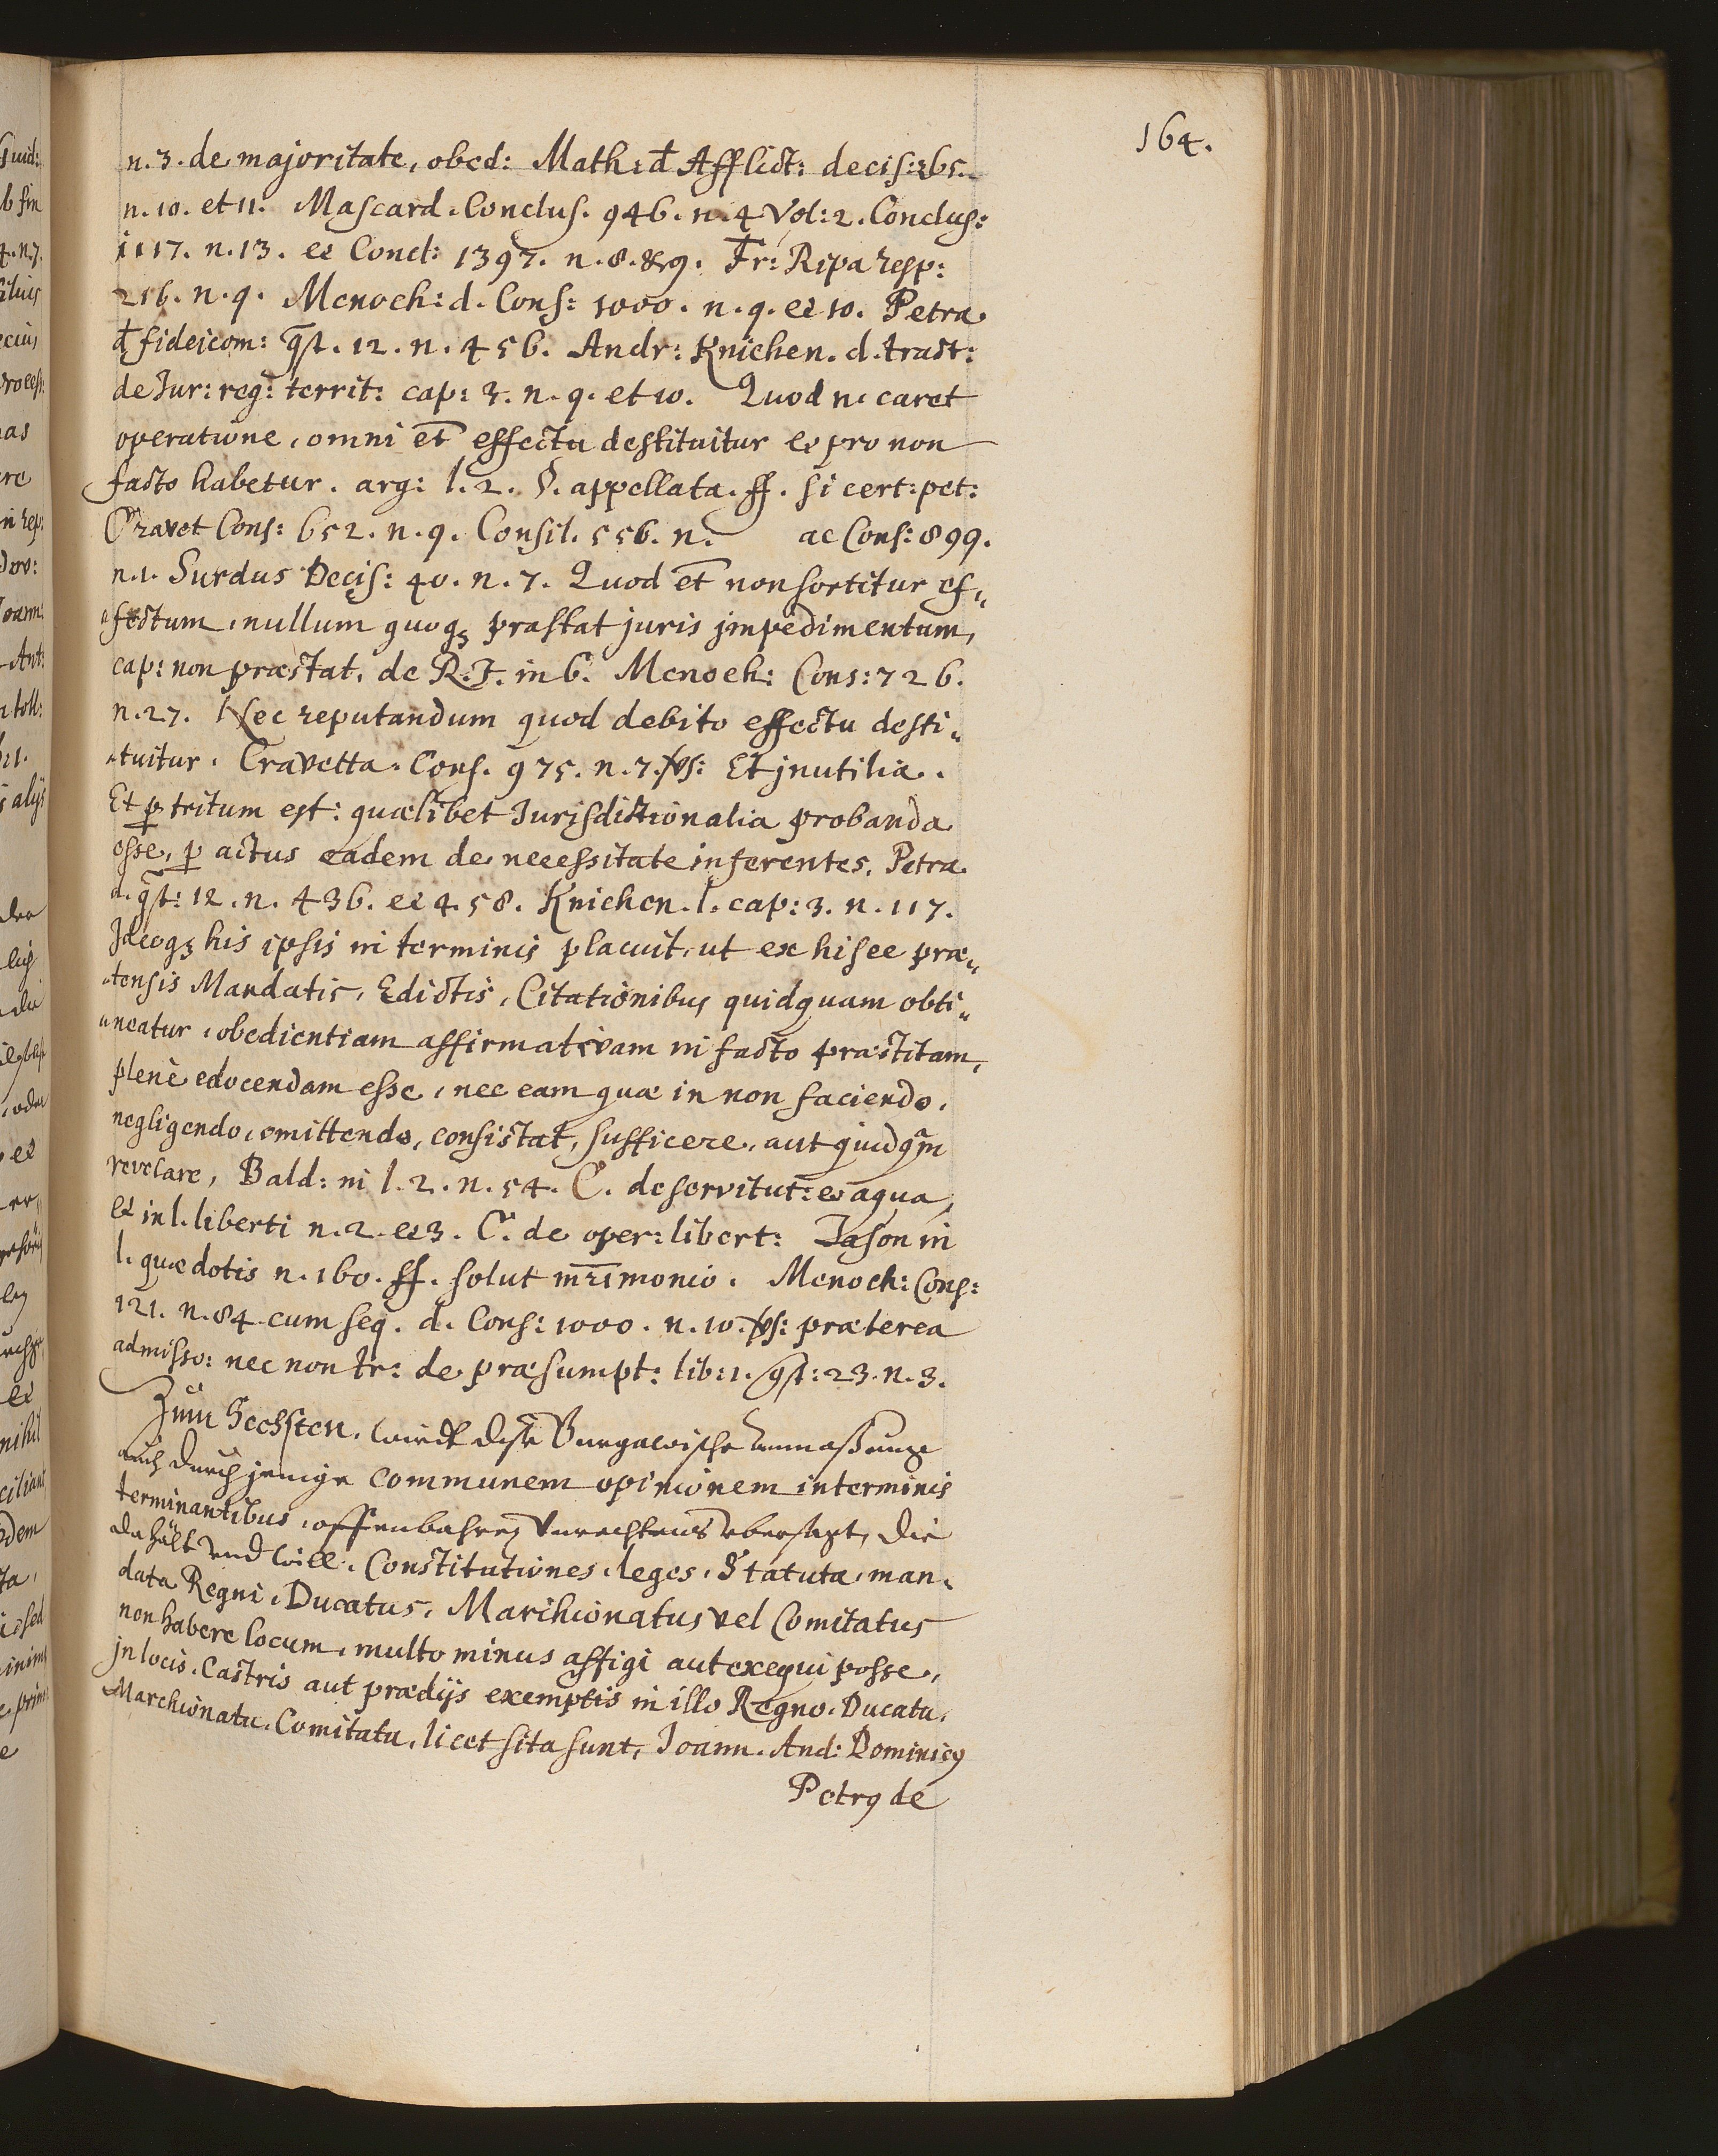 164.
n. 3. de majoritate, obed: Math: đ Afflict: decis: 265.
n. 10. et 11. Mascard. Conclus. 946. n. 4 Vol: 2. Conclus:
1117. n. 13. et Concl: 1397. n. 8. & 9. Fr: Ripa resp:
216. n. 9. Menoch: d. Cons: 1000. n. 9. et 10. Petra
đ fideicom: q̄st. 12. n. 456. Andr: Knichen. d. tract:
de Jur: reg: territ: cap: 3. n. 9. et 10. Quod n. caret
operatione, omni et̄ effectu destituitur et pro non
facto habetur. arg: l. 2. §. appellata. ff. si cert: pet:
Cravet Cons: 652. n. 9. Consil. 556. n. ac Cons: 899.
n. 1. Surdus Decis: 40. n. 7. Quod et̄ non sortitur ef„
„fectum, nullum quoqꝫ præstat juris jmpedimentum,
cap: non præstat. de R. J. in 6. Menoch: Cons: 726.
n. 27. Nec reputandum quod debito effectu desti„
„tuitur. Cravetta. Cons. 975. n. 7. vs: Et jnutilia.
Et ꝑtritum est: quælibet Jurisdictionalia probanda
esse, ꝑ actus eadem de necessitate inferentes. Petra
d. q̄st: 12. n. 436. et 4.58. Knichen. l. cap: 3. n. 117.
Jdeoqꝫ his ipsis in terminis placuit, ut ex hisce præ„
„tensis Mandatis, Edictis, Citationibus quidquam obti„
„neatur, obedientiam affirmativam in facto præstitam,
plenè edocendam esse, nec eam quæ in non faciendo,
negligendo, omittendo, consistat, sufficere, aut quidq̄m
revelare, Bald: in l. 2. n. 54. C. de servitut: et aqua,
Et in l. liberti n. 2. et 3. C. de oper: libert: Jason in
l. quæ dotis n. 160. ff. solut mr̄imonio. Menoch: Cons:
121. n. 84. cum seq. d. Cons: 1000. n. 10. vs: præterea
admisso: nec non tr: de præsumpt: lib: 1. q̄st: 23. n. 3.
Zum Sechsten, wirdt dise Burgawische anmaßung
auch durch jenige communem opinionem in terminis
terminantibus, offenbahren Unrechtens übersagt, die
da hält und will. Constitutiones, leges, Statuta, man„
data Regni, Ducatus, Marchionatus vel Comitatus
non habere locum, multo minus affigi aut exequi posse,
jn locis, Castris aut prædijs exemptis in illo Regno. Ducatu,
Marchionatu. Comitatu, licet sita sunt, Joann. And: Dominicꝯ
Petrꝯ de